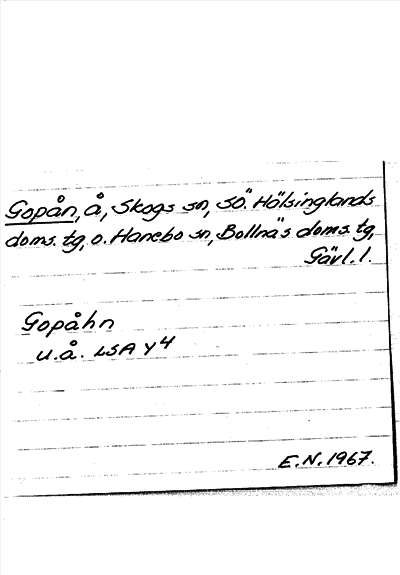 Gopån, å, Skogs sn, SÖ. Hälsinglands
doms. tg, o. Hanebo sn, Bollnäs doms. tg,
Gävl. l.
Gopåhn
u.å. LSA Y4
E.N. 1967.